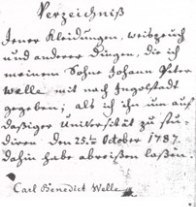 Verzeichniß
Jener Kleidungen, weißzeug
und anderer Dingen, die ich
meinem Sohne Johann Peter
Welle mit nach Ingolstadt
gegeben; als ich ihn um auf
dasiger Universität zu stu-
diren den 25.ten October 1787.
dahin habe abreißen laßen
Carl Benedict Welle